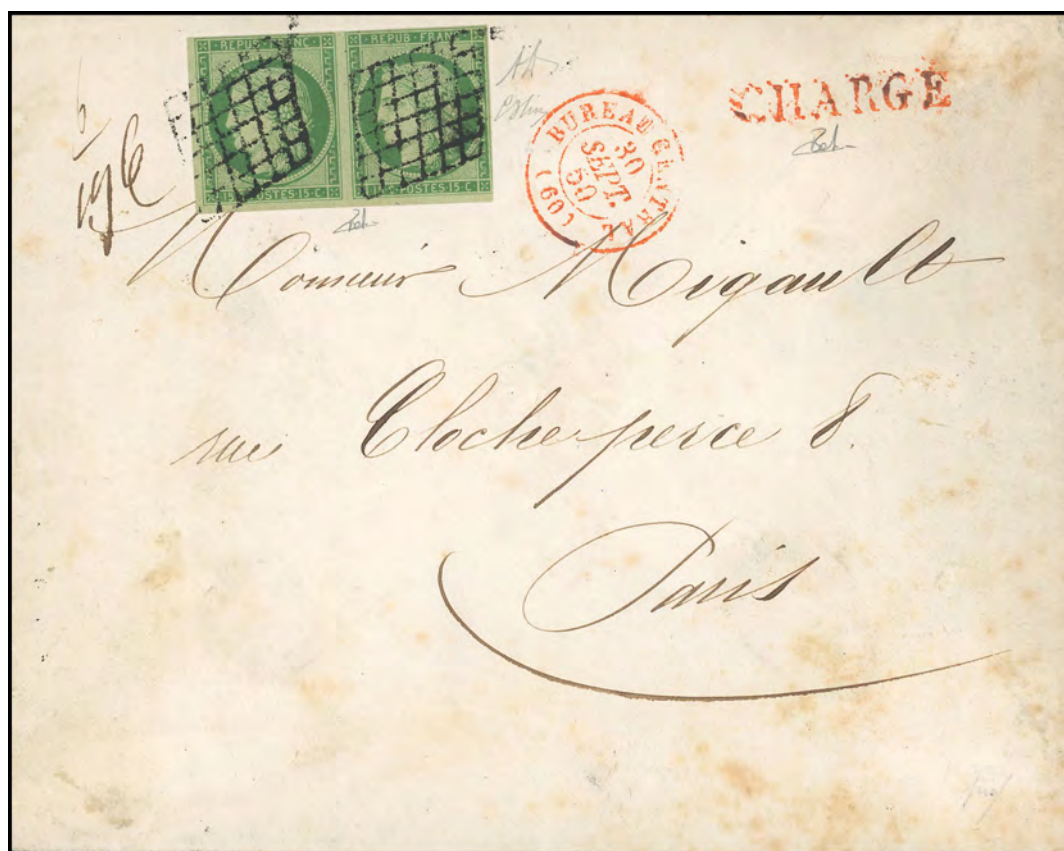 REPUB FRANC REPUB FRANC
15 C POSTES 15 C 15 C POSTES 15 C
BUREAU CENTRAL
30
SEPT.
50
(60)
CHARGE
Monsieur Migault
rue Cloche perce 8.
Paris